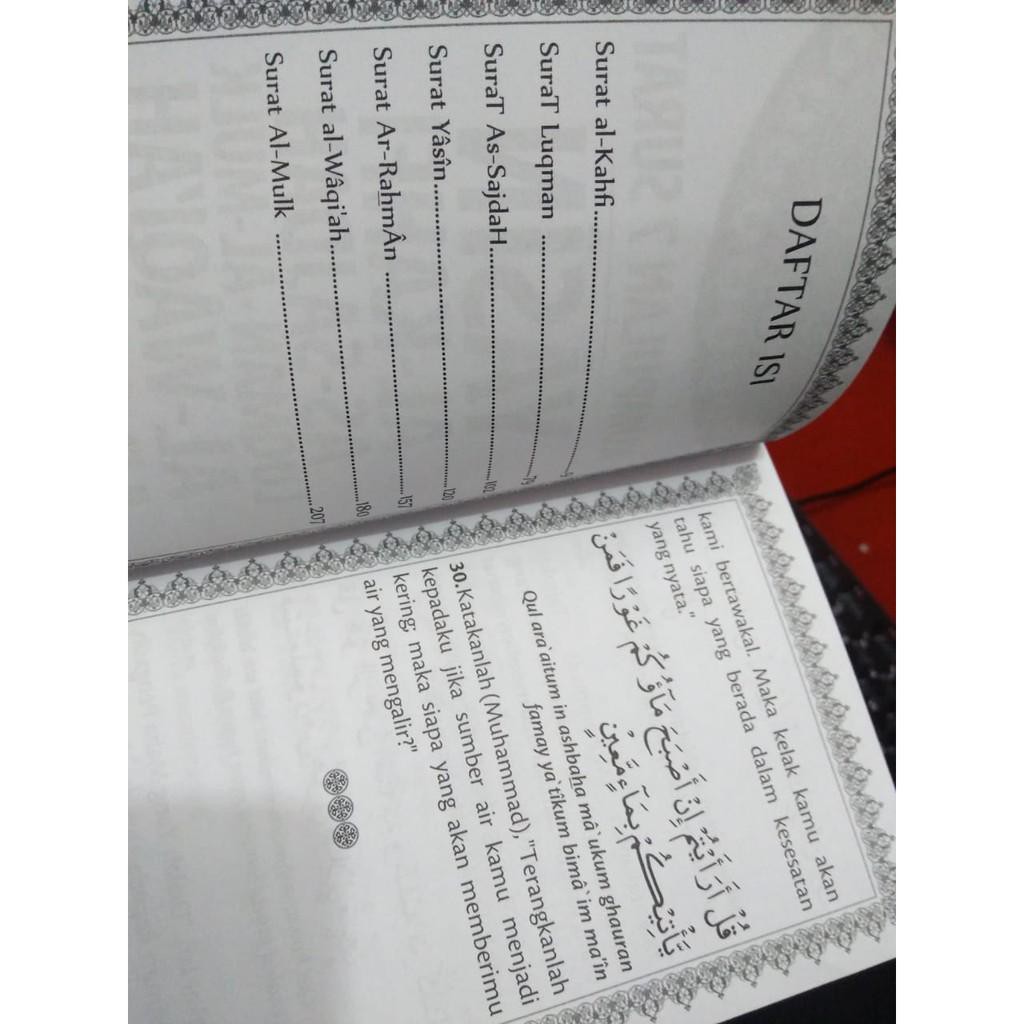 DAFTAR ISI
Surat al-Kahfi..........5
SuraT Luqman ..........79
SuraT As-SajdaH..........102
Surat Yâsîn..........120
Surat Ar-RahmÂn ..........157
Surat al-Wâqi'ah..........180
Surat Al-Mulk ..........207
kami bertawakal. Maka kelak kamu akan
tahu siapa yang berada dalam kesesatan
yang nyata."
قُلْ أَرَأَيْتُمْ إِنْ أَصْبَحَ مَآؤُكُمْ غَوْرًا فَمَنْ
يَأْتِيكُمْ بِمَآءٍ مَعِينٍ
Qul ara`aitum in ashbaha mâ`ukum ghauran
famay ya`tîkum bimâ`im ma'în
30.Katakanlah (Muhammad), "Terangkanlah
kepadaku jika sumber air kamu menjadi
kering; maka siapa yang akan memberimu
air yang mengalir?"